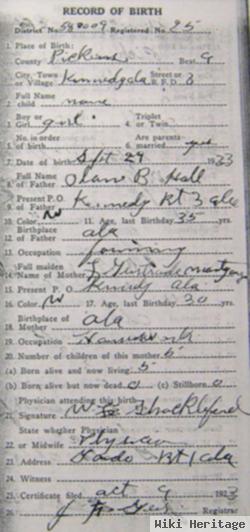 RECORD OF BIRTH
District No. 580009 Registered No. 25
1. Place of Birth:
County Pickens Beat 9
City, Town Street or 3
or Village Kennedy ala R.F.D.
Full Name
2. child none
Boy or Triplet
3. Girl girl 4. or Twin
No. in order Are parents
5. of birth 6. married yes
7. Date of birth Sept 29 1933
Full Name
8. of Father B Hall
Present P.O.
9. of Father Kennedy Rt 3 ala
10. Color W 11. Age, last Birthday 35 yrs.
Birthplace
12. of Father ala
13. Occupation farming
Full maiden
14. Name of Mother Gertrude
15. Present P.O. Kennedy ala
16. Color W 17. Age, last Birthday 30 yrs.
Birthplace of
18. Mother ala
19. Occupation
20. Number of children of this mother 5
(a) Born alive and now living 5
(b) Born alive but now dead 0 (c) Stillborn 0
Physician attending this birth
21. Signature W Shackelford
State whether Physician
22. or Midwife
23. Address Rt 1 ala
24. Witness
25. Certificate filed oct 9 1933
26. Registrar
Wiki Heritage